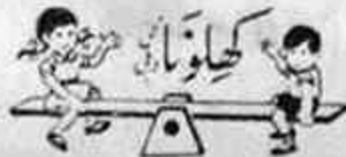 کھِلَونَا